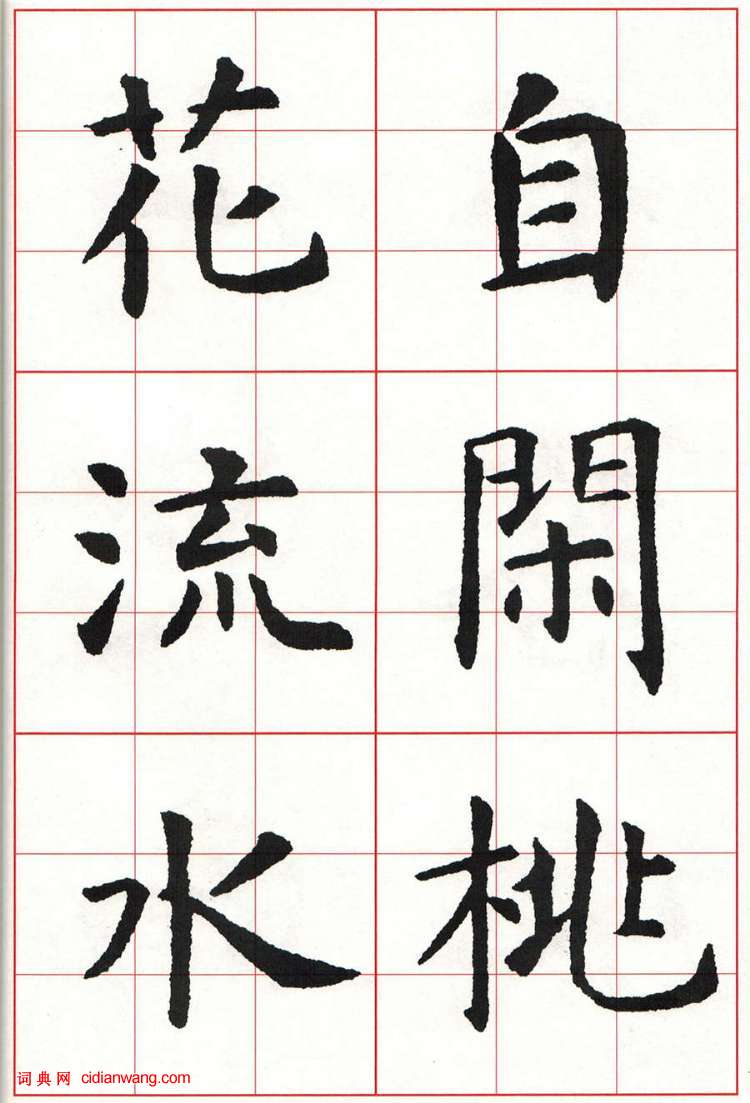 自閑桃
花流水
词典网 cidianwang.com